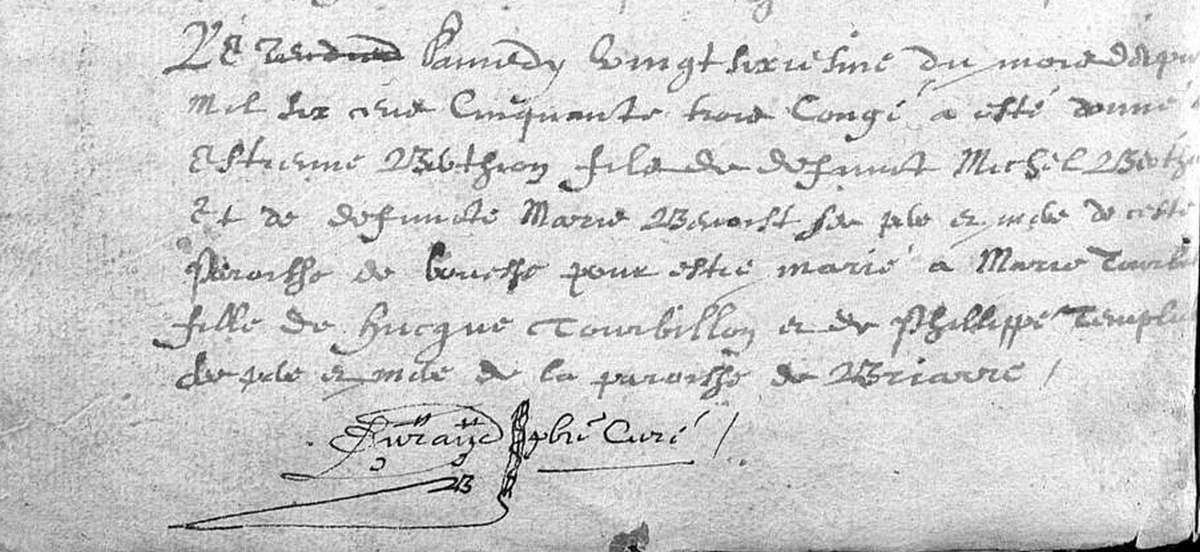 Le Samedy vingt sixiesme du mois
Mil six cens Cinquante trois Congé a esté donné
Estienne Berthon fils de deffunct Michel
Et de deffuncte Marie Benoist ses pere et mere de ceste
Paroisse de pour estre marié a Marie
fille de Hucque Tourbillon et de Phillippe
de pere et mere de la paroisse de Briarre /
Durand pbre Curé /